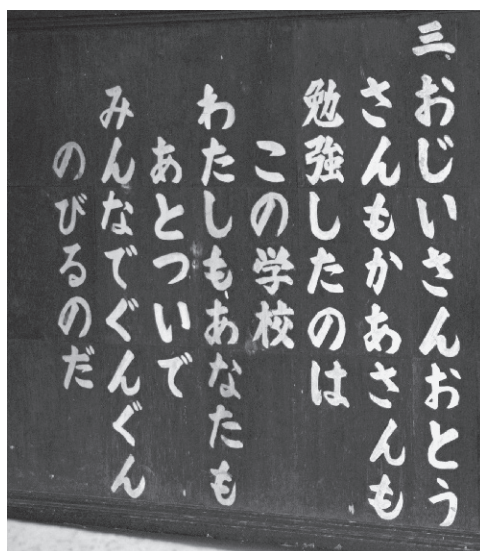 三、おじいさんおとう
さんもかあさんも
勉強したのは
この学校
わたしもあなたも
あとついで
みんなでぐんぐん
のびるのだ